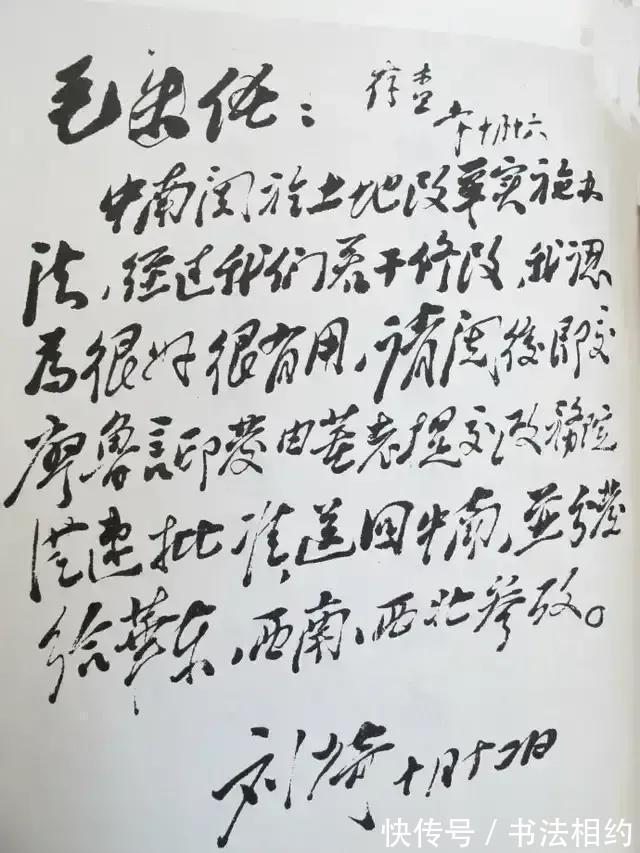 毛朱任：
存查
十月十六
中南関於土地改革實施办
法，經过我们若干修改，我認
為很好很有用，請閱後即交
廖魯言印發由董老提交政務院
從速批准，送回中南，並分發
給華东、西南、西北參攷。
刘少奇 十月十二日
快传号 / 书法相约